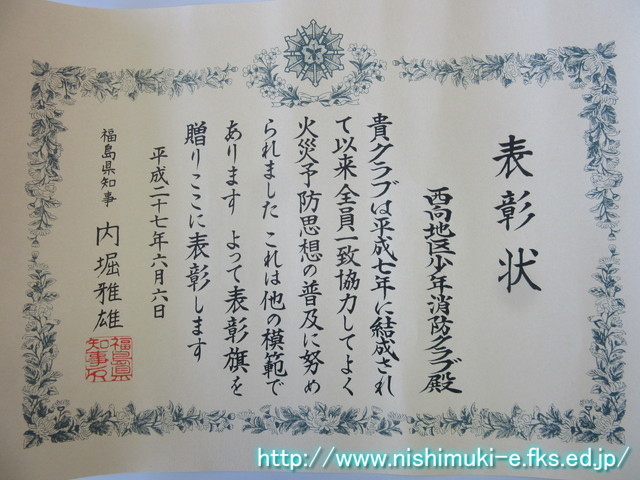 表彰状
西向地区少年消防クラブ殿
貴クラブは平成七年に結成され
て以来全員一致協力してよく
火災予防思想の普及に努め
られました これは他の模範で
あります よって表彰旗を
贈りここに表彰します
平成二十七年六月六日
福島県知事 内堀雅雄
福島県
知事印
http://www.nishimuki-e.fks.ed.jp/